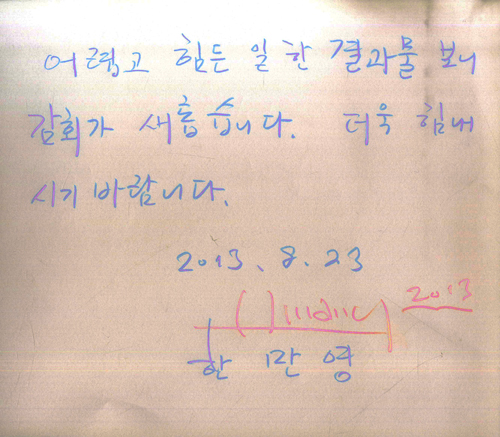 어렵고 힘든 일 한 결과물 보니
감회가 새롭습니다. 더욱 힘내
시기 바랍니다.
2013. 8. 23
2013
한 만 영